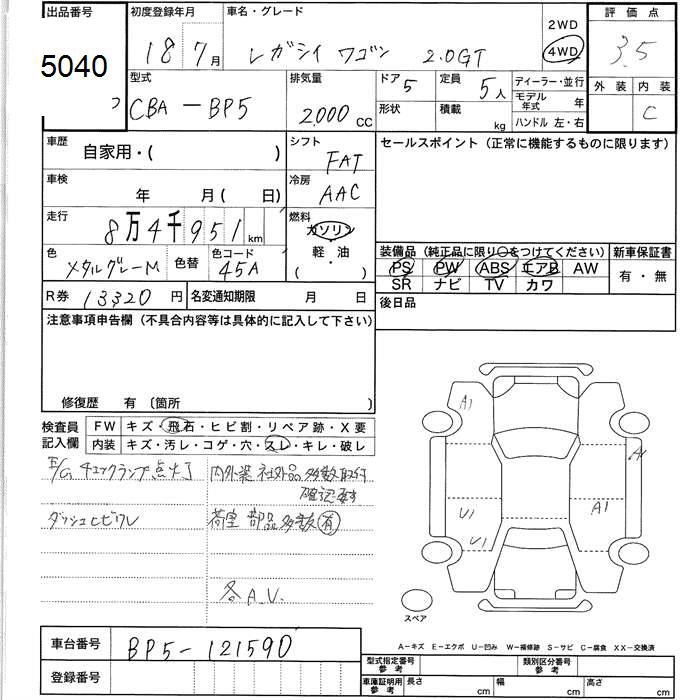 出品番号 初度登録年月 車名・グレード 2WD 評価点
5040 18 7月 レガシイ ワゴン 2.0GT 4WD 3.5
型式 排気量 ドア 5 定員 5人 ディーラー・並行 外装 内装
CBA-BP5 2000 CC 形状 積載 kg モデル年式 年 C
ハンドル 左・右
車歴 自家用・( ) シフト FAT セールスポイント (正常に機能するものに限ります)
車検 年 月( 日) 冷房 AAC
走行 8万4千951km 燃料 ガソリン
軽・油
( )
色 メタルグレーM 色替 色コード 45A
装備品 (純正品に限り○をつけてください) 新車保証書
PS PW ABS エアB AW 有・無
SR ナビ TV カワ
R券 13320円 名変通知期限 月 日 後日品
注意事項申告欄 (不具合内容等は具体的に記入して下さい)
修復歴 有 〔箇所 〕
検査員記入欄 FW キズ・飛石・ヒビ割・リペア跡・X要
内装 キズ・汚レ・コゲ・穴・スレ・キレ・破レ
E/Gチェックランプ点灯 内外装社外品多数取付
確認要す
ダッシュヒビワレ 荷室部品多数有
各A.U.
A1
A1
U1 A1
U1
スペア
A-キズ E-エクボ U-凹み W-補修跡 S-サビ C-腐食 XX-交換済
車台番号 BP5-121590
登録番号
型式指定番号 参考 類別区分番号 参考
車庫証明用 参考 長さ cm 幅 cm 高さ cm